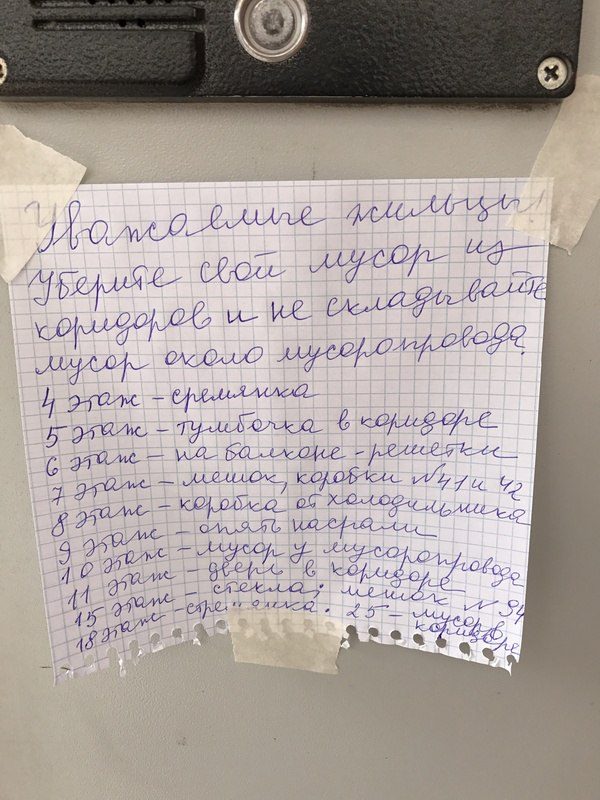 Уважаемые жильцы!
Уберите свой мусор из
коридоров и не складывайте
мусор около мусоропровода.
4 этаж – сремянка
5 этаж – тумбочка в коридоре
6 этаж – на балконе – решетки
7 этаж – мешок, коробки №41 и 42
8 этаж – коробка от холодильника
9 этаж – опять насрали
10 этаж – мусор у мусоропровода
11 этаж – дверь в коридоре
15 этаж – стекла; мешок №94
18 этаж – стремянка. 25 – мусор в
коридоре